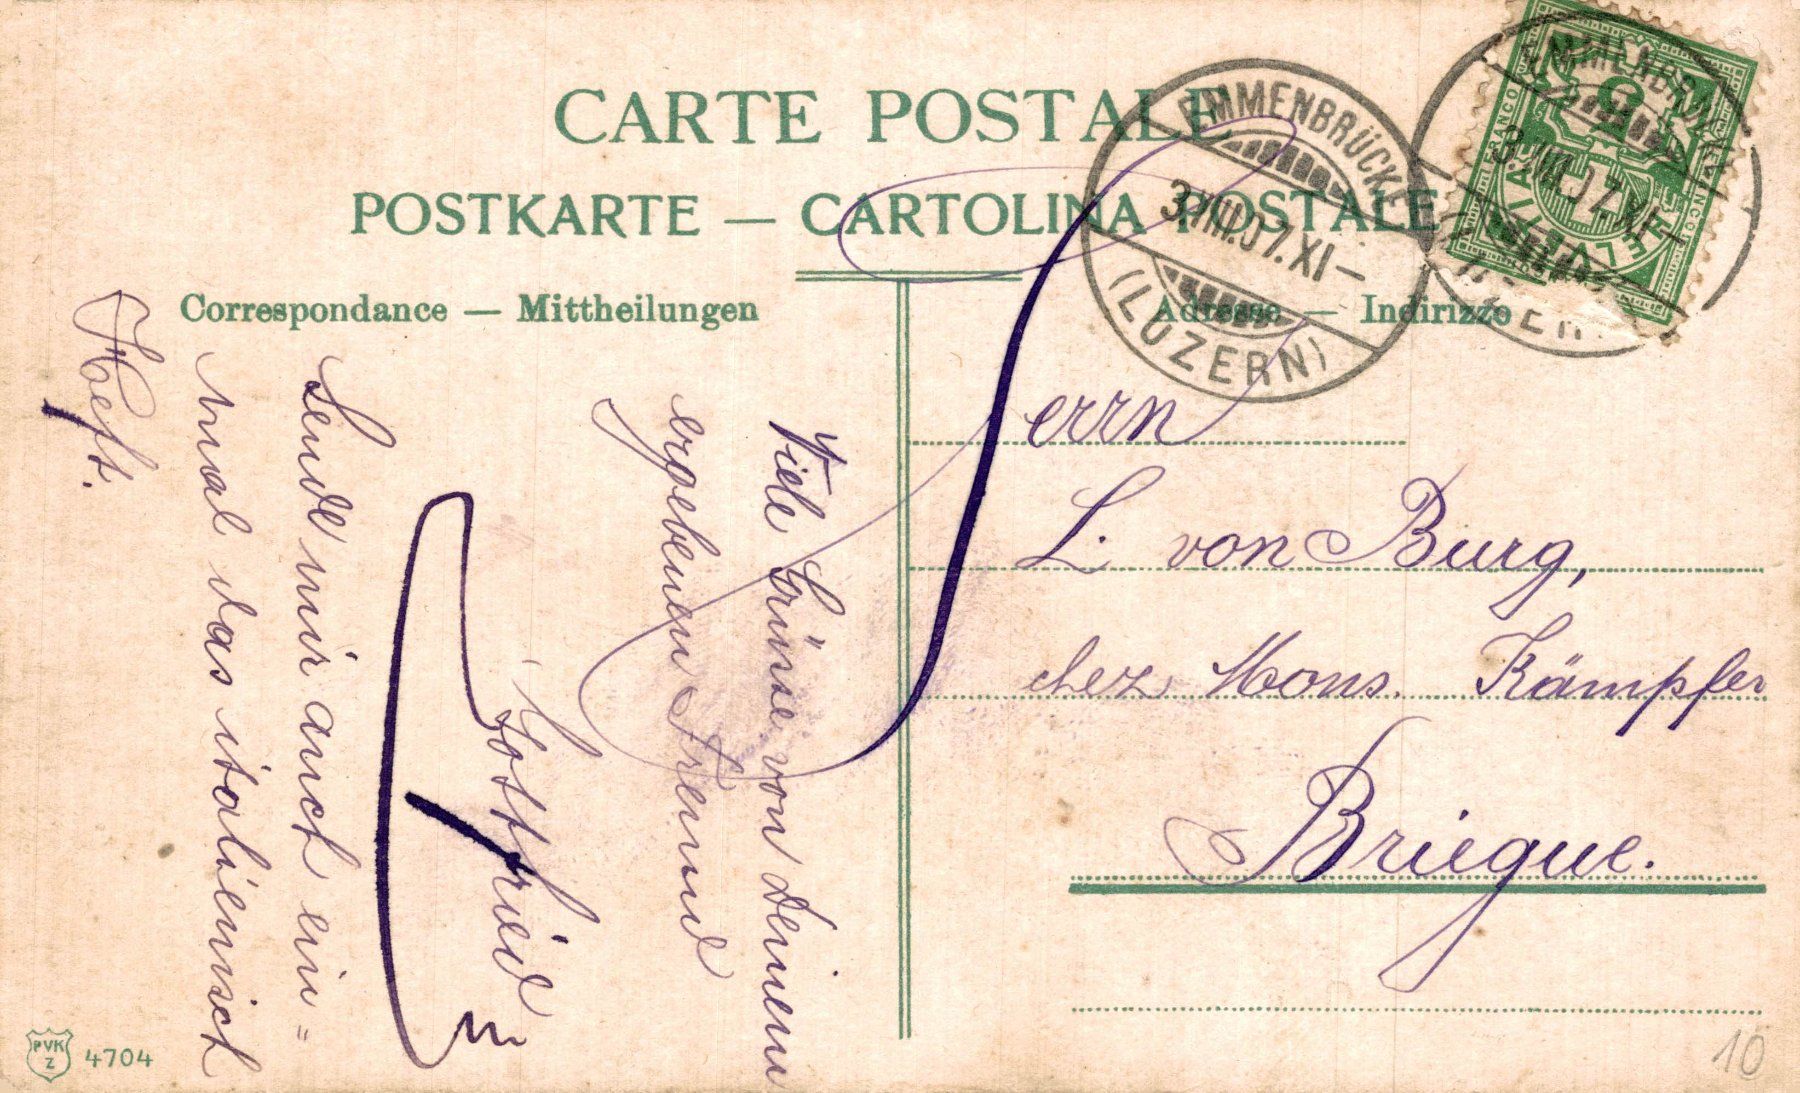 CARTE POSTALE
POSTKARTE — CARTOLINA POSTALE
Correspondance — Mittheilungen
Adresse — Indirizzo
EMMENBRÜCKE
3.VIII.07.XI—
(LUZERN)
EMMENBRÜCKE
3.VIII.07.XI—
FRANCO
HELVETIA
FRANCO
5
Herrn
L. von Burg,
chez Mons. Kämpfer
Briegue.
Viele Grüsse von deinem
ergebenen Freund
Gottfried
Sende mir auch ein=
mal das italienisch
Heft.
PVK
Z
4704
10